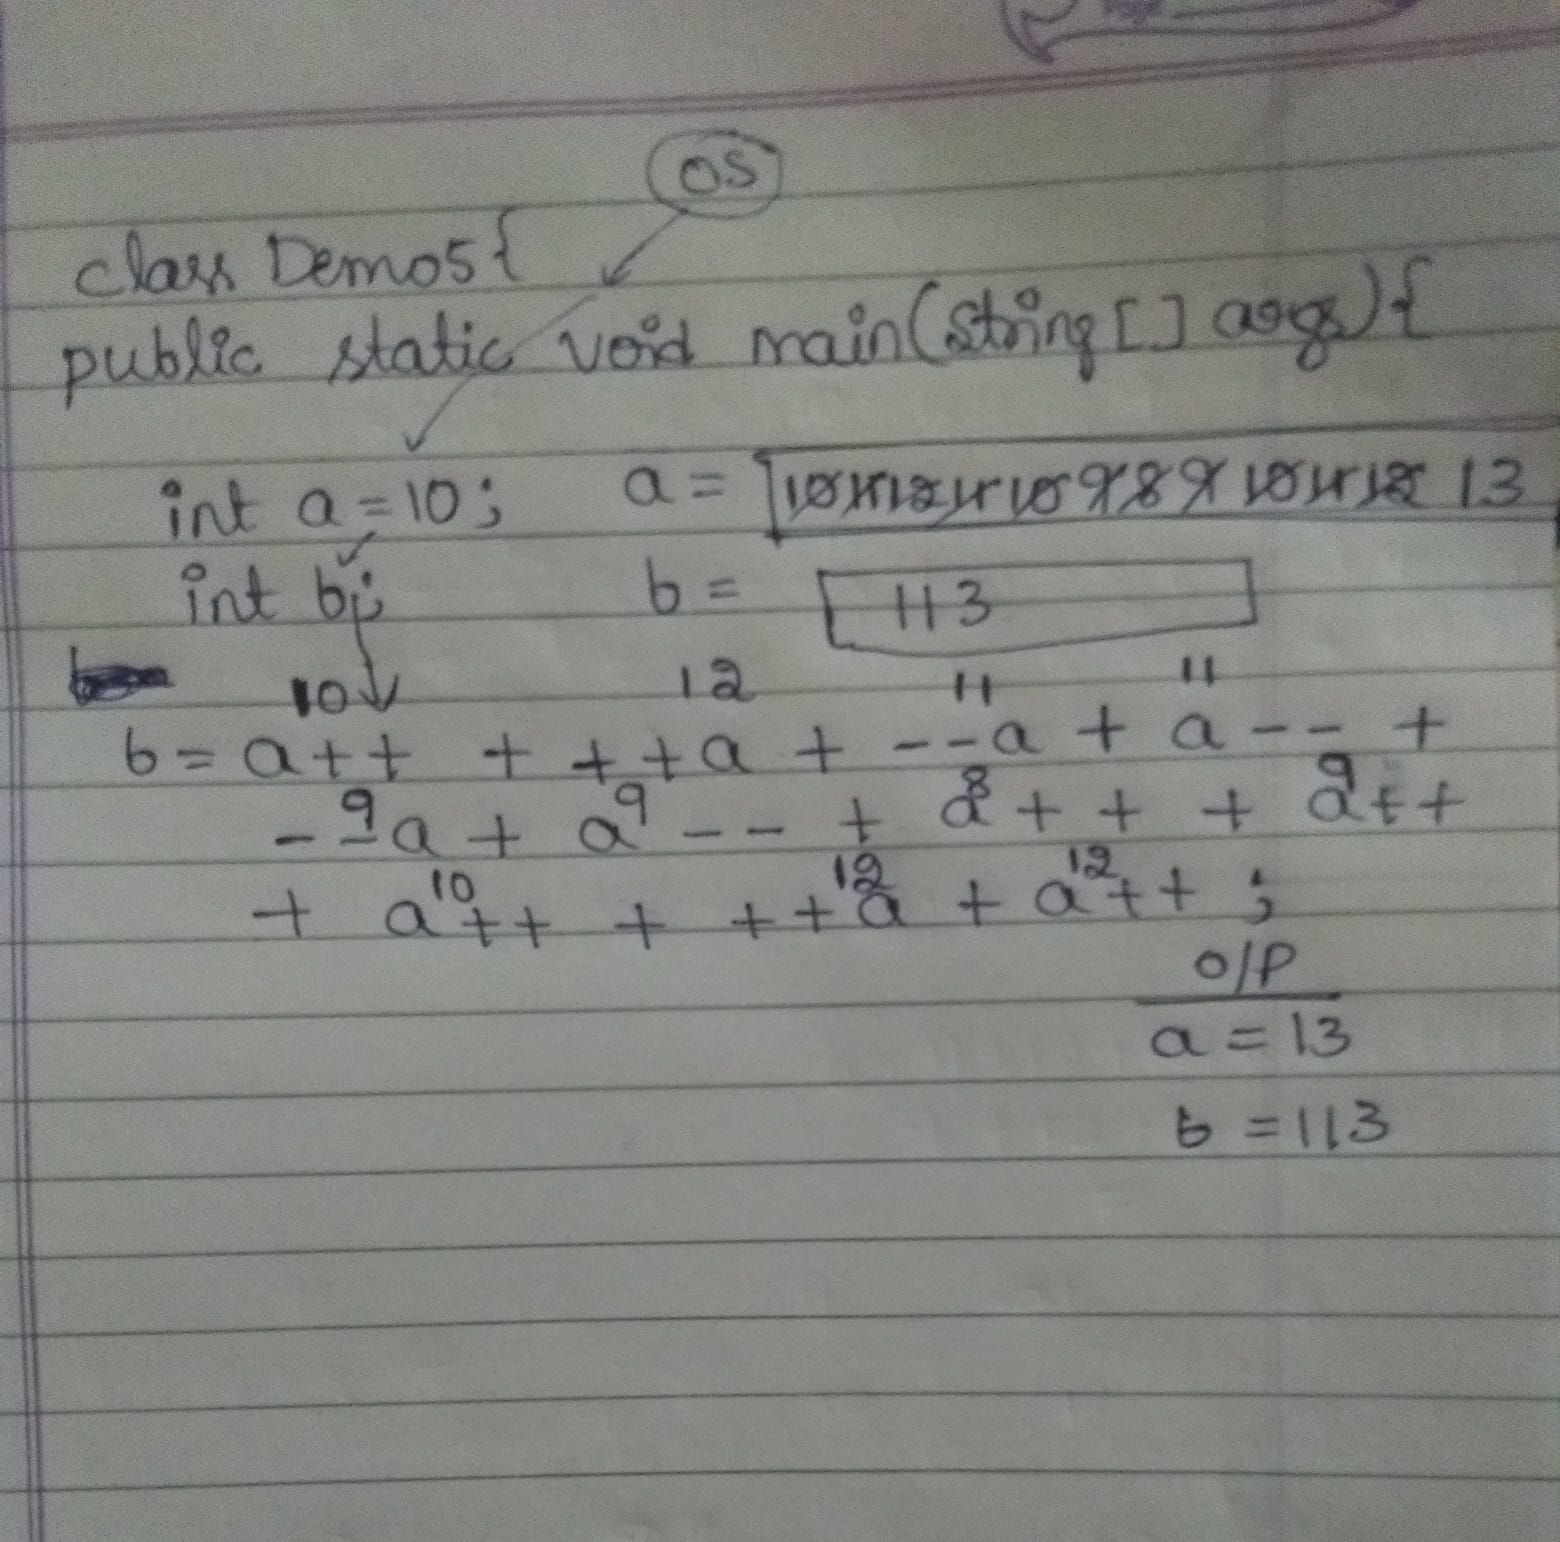 OS
class Demo5{
public static void main(string[] args){
int a = 10; a = 10 11 12 11 10 9 8 9 10 11 12 13
int b; b = 113
10 12 11 11
b = a++ + ++a + --a + a-- +
9 9 8 9
--a + a-- + a++ + a++
10 12 12
+ a++ + ++a + a++ ;
O/P
a = 13
b = 113